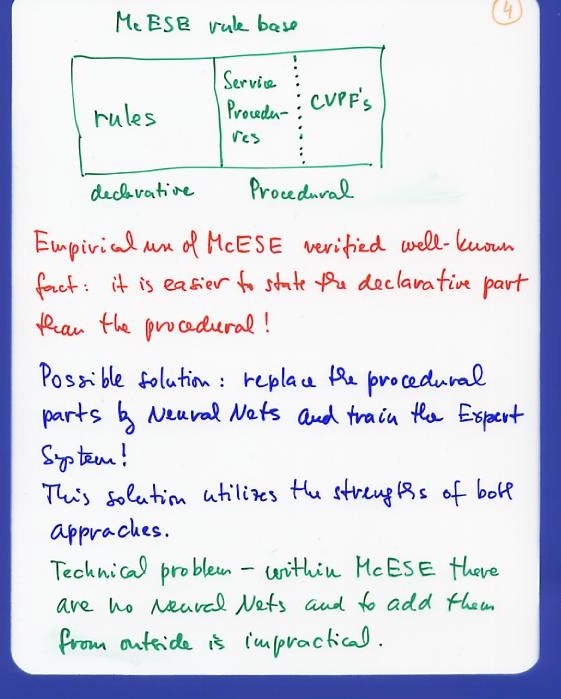 4
McESE rule base
rules
Service
Procedu-
res
CVPF's
declarative
Procedural
Empirical use of McESE verified well-known
fact: it is easier to state the declarative part
than the procedural!
Possible solution: replace the procedural
parts by Neural Nets and train the Expert
System!
This solution utilizes the strengths of both
appraches.
Technical problem - within McESE there
are no Neural Nets and to add them
from outside is impractical.